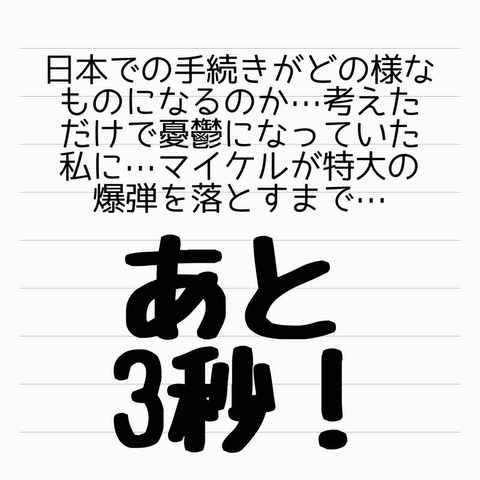 日本での手続きがどの様な
ものになるのか…考えた
だけで憂鬱になっていた
私に…マイケルが特大の
爆弾を落とすまで…
あと
3秒！